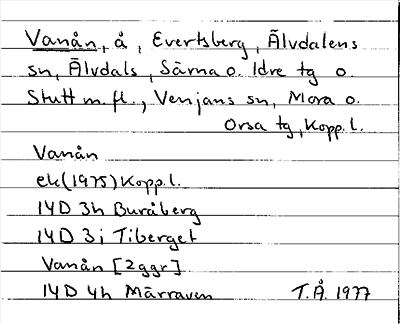 Vanån, å, Evertsberg, Älvdalens
sn, Älvdals, Särna o. Idre tg o.
Stutt m. fl., Venjans sn, Mora o.
Orsa tg, Kopp. l.
Vanån
ek (1975) Kopp. l.
14D 3h Buråberg
14D 3i Tiberget
Vanån [2ggr]
14D 4h Märraven T.Å. 1977